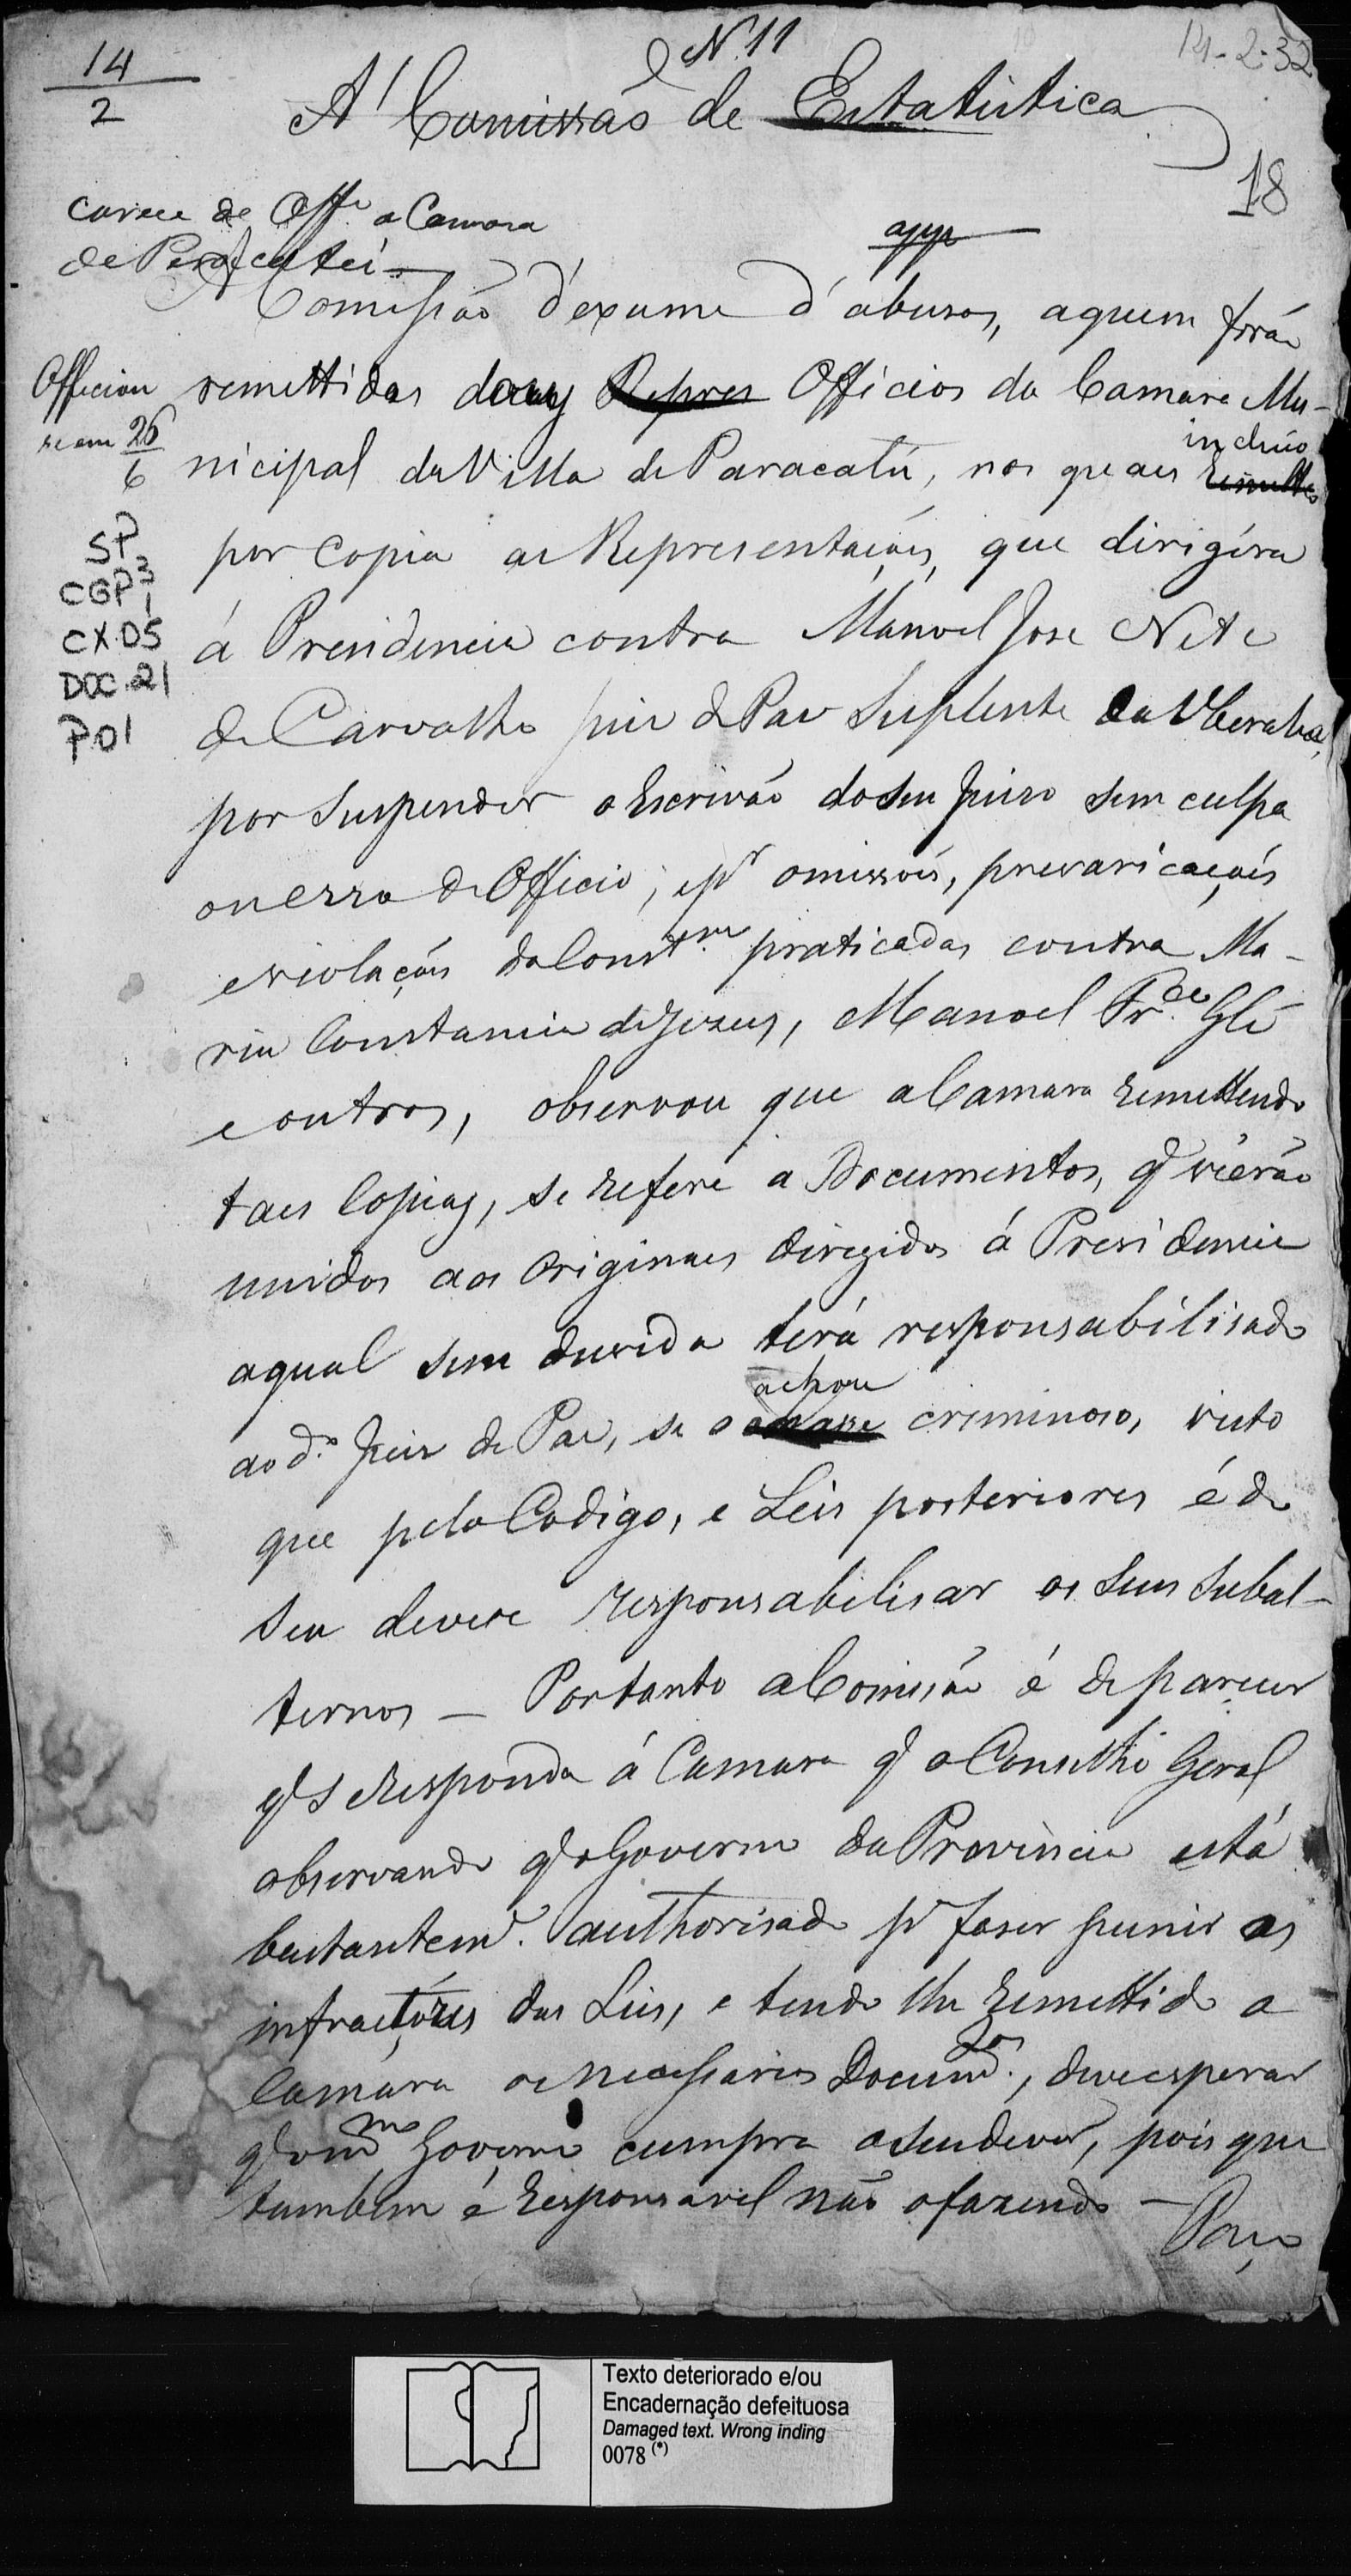 N. 11
14-2-32
14
2
A' Comissaõ de Estatistica
18
carece de Off.e a Camara
de Paracatú
app
A Comissão d'exame d'abusos, aquem forão
Officiou
se em 26
6
remettidos dous Repres Officios da Camara Mu-
nicipal da Villa de Paracatú, nos quaes incluio
Remette
por copia as Representações, que dirigíra
á Presidencia contra Manoel Jose Nete
de Carvalho Juiz de Paz Suplente da Uberaba,
por suspender o Escrivão do seu Juizo sem culpa
ou erro de Officio; e pr omissões, prevaricações
e violações da Const.am praticadas contra Ma-
ria Constancia de Jezus, Manoel Fr.co
e outros, observou que a Camara remettendo
taes copias, se refere a Documentos, q' vierão
unidos aos Originaes diregidos á Presidencia
aqual sem duvida terá responsabilisado
ao d.º Juiz de Paz, se o achou criminoso, visto
que pelo Codigo, e Leis posteriores é do
seu dever responsabilisar os seus subal-
ternos — Portanto a Comissão é de parecer
q' se responda á Camara q' o Conselho Geral
observando q' o Governo da Provincia está
bastantem.e authorisado pª faser punir os
infractóres das Leis, e tendo lhe remettido a
Camara os necessarios Docum.tos, deve esperar
q' o m.mo Governo cumpra o seu dever, pois que
tambem é responsavel não o fazendo —
Paço
SP
CGP 3
1
CX.05
DOC.21
P01
Texto deteriorado e/ou
Encadernação defeituosa
Damaged text. Wrong inding
0078 (*)